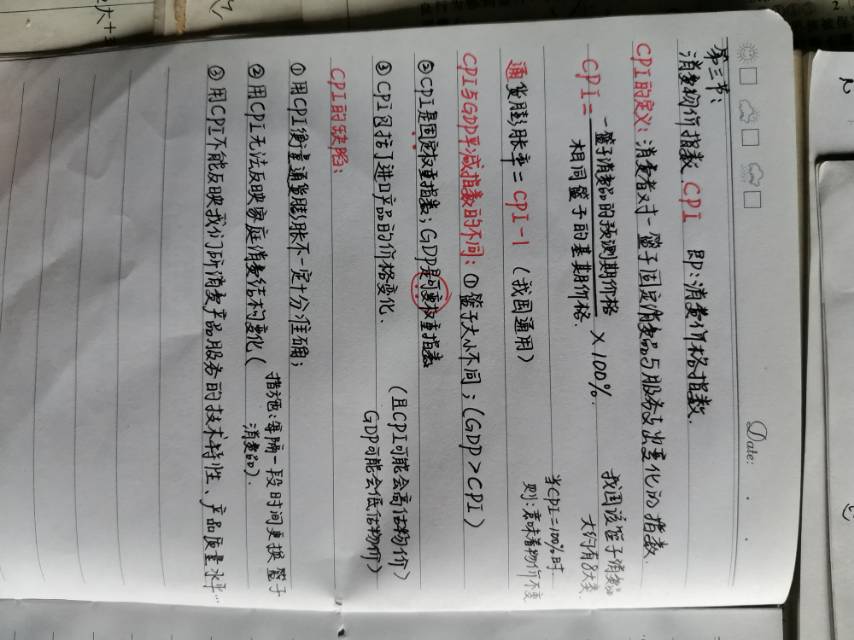 Date:
第三节：
消费物价指数 CPI 即：消费价格指数.
CPI的定义：消费者对一篮子固定消费品与服务支出变化的指数.
CPI = 一篮子消费品的预测期价格 / 相同篮子的基期价格. × 100%.
我国该篮子消费品
大约有8大类.
通货膨胀率 = CPI-1 (我国通用)
当CPI=100%时
则：意味着物价不变
CPI与GDP平减指数的不同：① 篮子大小不同；(GDP > CPI)
② CPI是固定权重指数；GDP是可变权重指数
③ CPI包括了进口产品的价格变化.
(且CPI可能会高估物价)
GDP可能会低估物价)
CPI的缺陷：
① 用CPI衡量通货膨胀不一定十分准确；
② 用CPI无法反映家庭消费结构变化 (措施：每隔一段时间更换篮子
消费品).
③ 用CPI不能反映我们所消费产品服务的技术特性、产品质量水平...